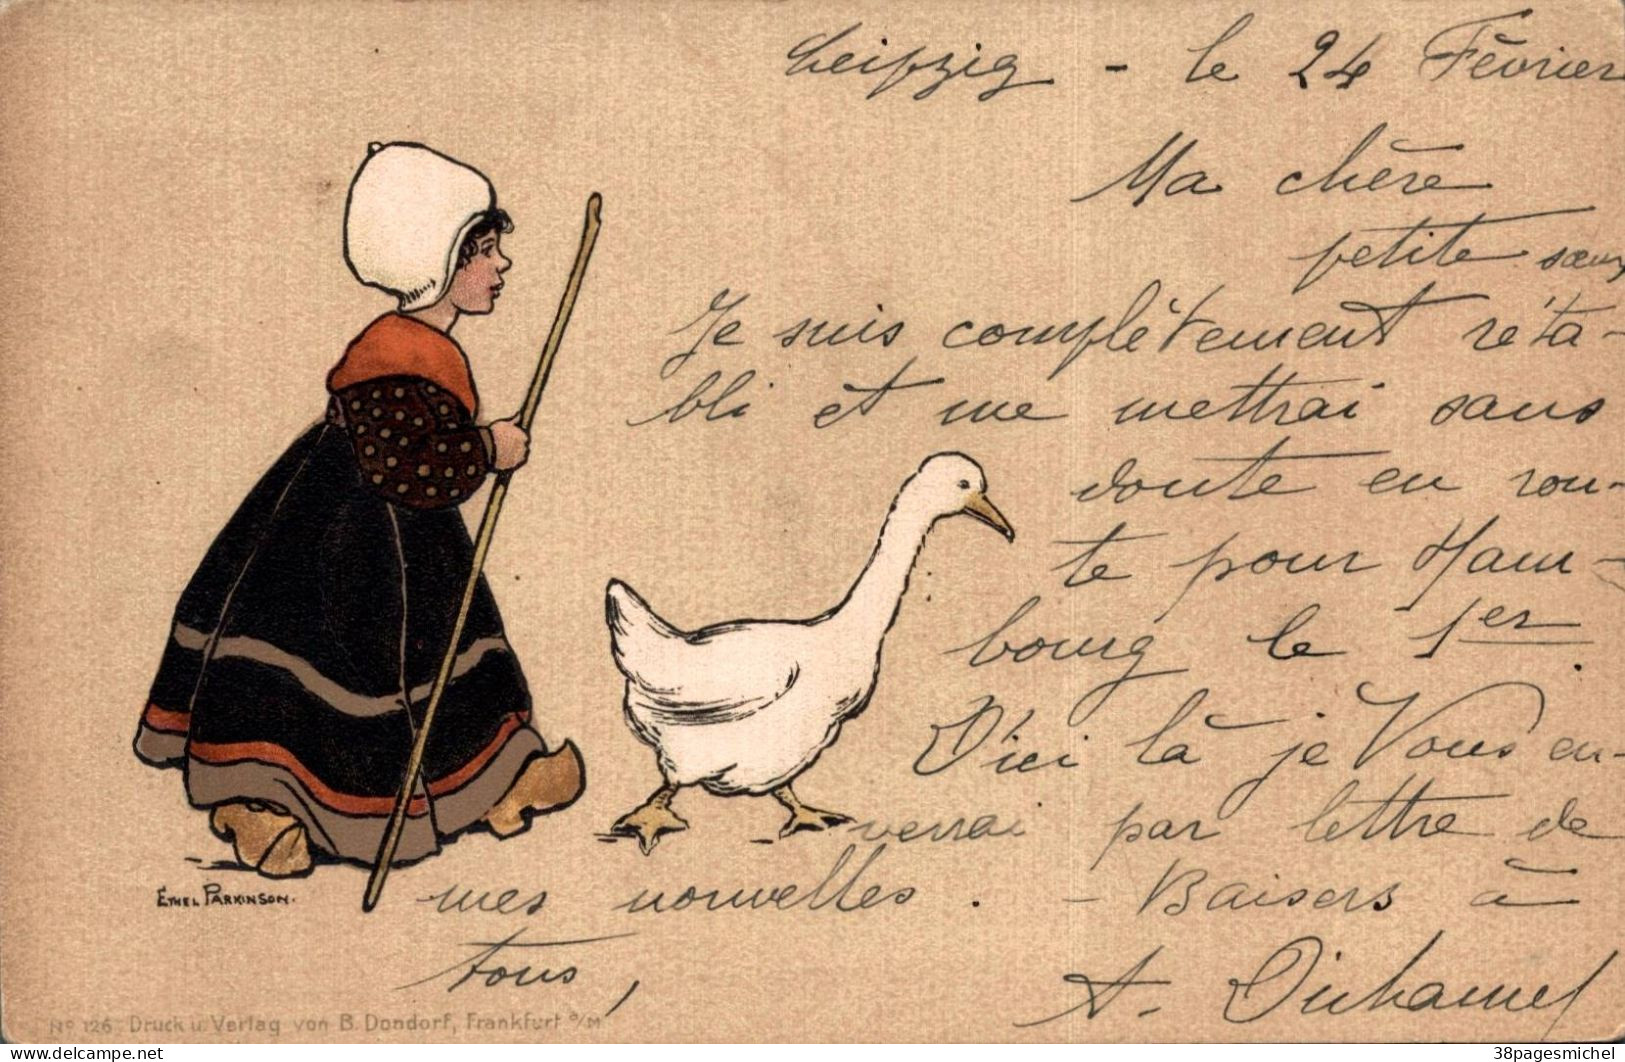 Leipzig - le 24 Février
Ma chère
petite sœur
Je suis complètement réta-
bli et me mettrai sans
doute en rou-
te pour Ham-
bourg le 1er.
D'ici là je Vous en-
verrai par lettre de
mes nouvelles. - Baisers à
tous,
A. Duhamel
ETHEL PARKINSON.
No 126. Druck u. Verlag von B. Dondorf, Frankfurt a/M
delcampe.net
38pagesmichel